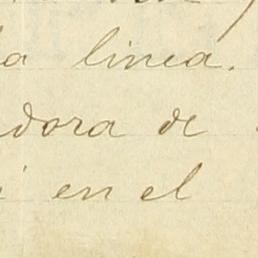 la linea.
dora de
en el